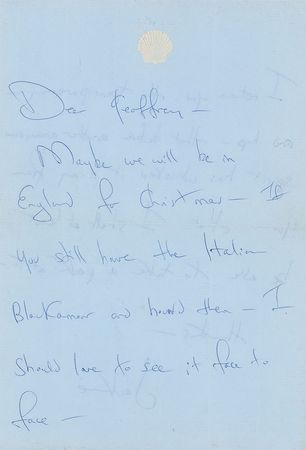 Dear Geoffrey —
Maybe we will be in
England for Christmas — If
you still have the Italian
Blackamoor and haven't then — I
should love to see it face to
face —